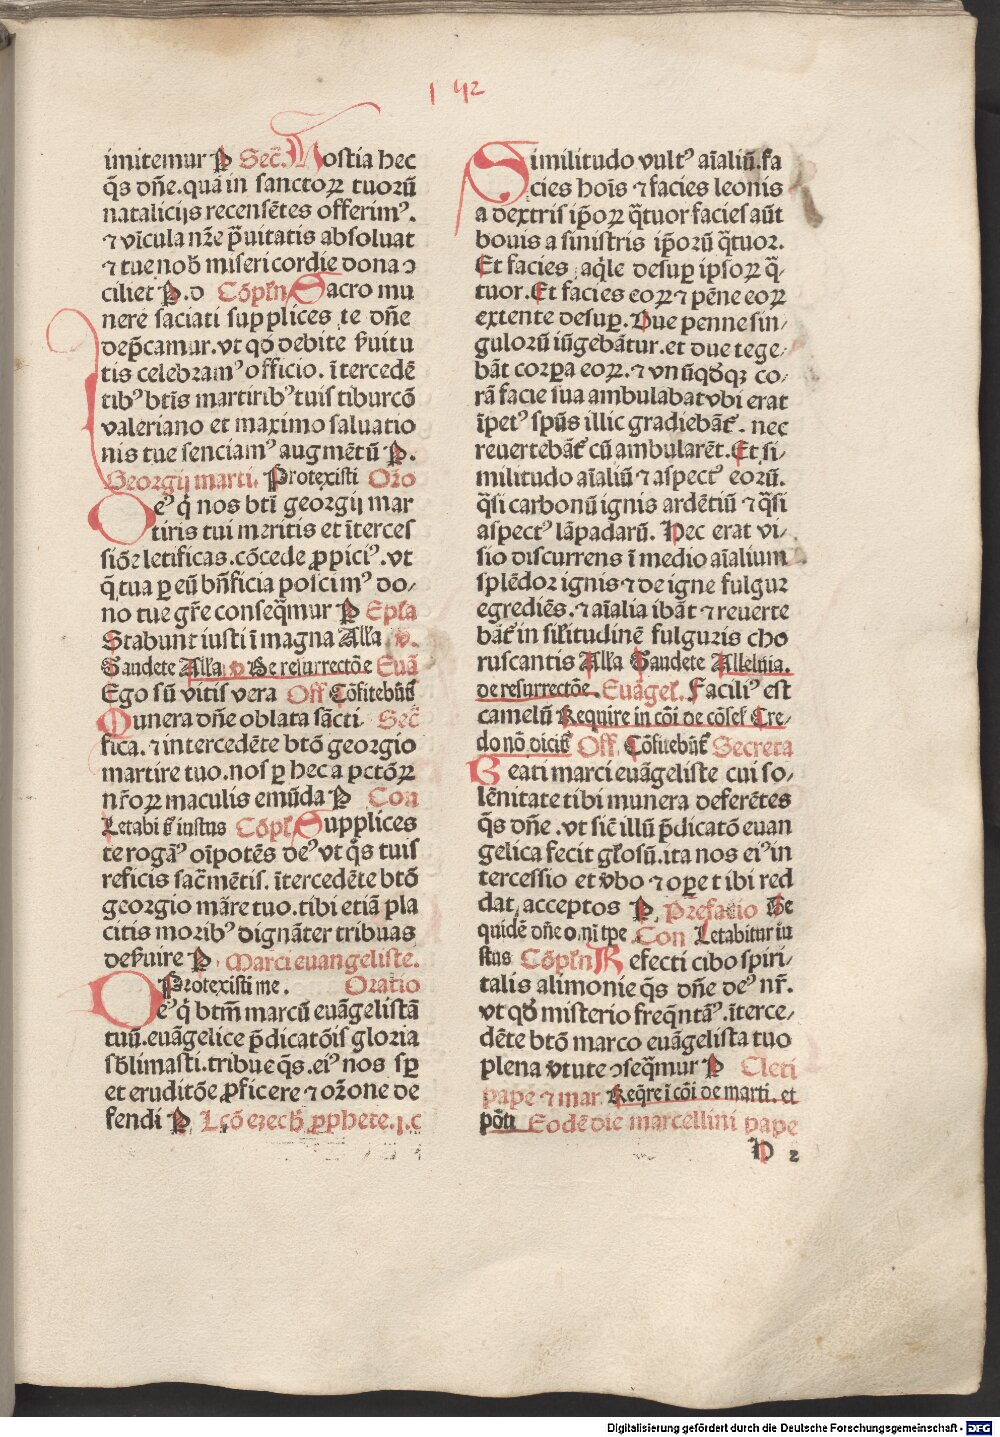 1 42
imitemur P Secͣ. Hostia hec
q̄s dn̄e. quā in sanctoꝝ tuoꝝ
natalicijs recensētes offerimꝰ.
⁊ vīcula nr̄e p̄uitatis absoluat
⁊ tue nob̄ misericordie dona ↄ
ciliet P. d Cōpl̄n Sacro mu
nere saciati supplices te dn̄e
dep̄camur. vt qd̄ debite ẜuitu
tis celebramꝰ officio. ītercedē
tibꝰ btīs martiribꝰ tuis tiburcō
valeriano et maximo saluatio
nis tue senciamꝰ augmētū P.
Georgij marti. Protexisti Oȓo
Deꝰ q̇ nos btī georgij mar
tiris tui meritis et īterces
siōe letificas. cōcede ꝓpiciꝰ. vt
q̇ tua ꝑ eū bn̄ficia poscimꝰ do⸗
no tue gr̄e conseq̄mur P Epl̄a
Stabunt iusti ī magna All̄a v.
Gaudete All̄a v De resurrectōe Euā
Ego sū vitis vera Off Cōfitebūt̄
Munera dn̄e oblata sācti Secͣ
fica. ⁊ intercedēte btō georgio
martire tuo. nos ꝑ hec a pctōꝝ
nr̄oꝝ maculis emūda P Con
Letabit̄ iustus Cōpl̄ Supplices
te rogaꝰ oīpotēs deꝰ vt q̄s tuis
reficis sac̄mētis. ītercedēte btō
georgio mār̄e tuo. tibi etiā pla
citis moribꝰ dignāter tribuas
deẜuire P. Marci euangeliste.
Protexisti me. Oratio
Deꝰ q̇ btm̄ marcū euāgelistā
tuū. euāgelice p̄dicatōis gloria
sb̄limasti. tribue q̄s. eiꝰ nos sꝑ
et eruditōe ꝓficere ⁊ oȓone de
fendi P Lcō ezech̄ ꝓphete. j. c
Similitudo vultꝰ aīaliū. fa
cies hoīs ⁊ facies leonis
a dextris ip̄oꝝ q̄tuor facies aūt
bouis a sinistris ip̄orū q̄tuor.
Et facies aq̇le desuꝑ ipsoꝝ q̄⸗
tuor. Et facies eoꝝ ⁊ pēne eoꝝ
extente desuꝑ. Due penne sin⸗
gulorū iūgebātur. et due tege⸗
bāt corꝑa eoꝝ. ⁊ vnūqd̄qꝫ co⸗
rā facie sua ambulabat vbi erat
īpetꝰ spūs illic gradiebāt̄. nec
reuertebāt̄ cū ambularēt. Et si⸗
militudo aīaliū ⁊ aspectꝰ eorū.
q̄si carbonū ignis ardētiū ⁊ q̄si
aspectꝰ lāpadarū. Hec erat vi⸗
sio discurrens ī medio aīalium
splēdor ignis ⁊ de igne fulgur
egrediēs. ⁊ aīalia ibāt ⁊ reuerte
bāt̄ in sil̄itudinē fulguris cho
ruscantis All̄a Gaudete Alleluia.
de resurrectōe. Euāgel̄. Faciliꝰ est
camelū Require in cōi de cōfes̄. Cre⸗
do nō dicit̄ Off. Cōfitebūt̄ Secreta
Beati marci euāgeliste cui so⸗
lēnitate tibi munera deferētes
q̄s dn̄e. vt sic̄ illū p̄dicatō euan
gelica fecit gl̄osū. ita nos eiꝰ in
tercessio et v̄bo ⁊ oꝑe tibi red
dat acceptos P. Prefacio Te
quidē dn̄e o. nī tpe Con Letabitur iu
stus Cōpl̄n Refecti cibo spiri⸗
talis alimonie q̄s dn̄e deꝰ nr̄.
vt qd̄ misterio freq̄ntaꝰ. īterce⸗
dēte btō marco euāgelista tuo
plena v̄tute ↄseq̄mur P Cleti
pape ⁊ mar. Req̇re ī cōi de marti. et
pōti Eodē die marcellini pape
P 2
Digitalisierung gefördert durch die Deutsche Forschungsgemeinschaft - DFG